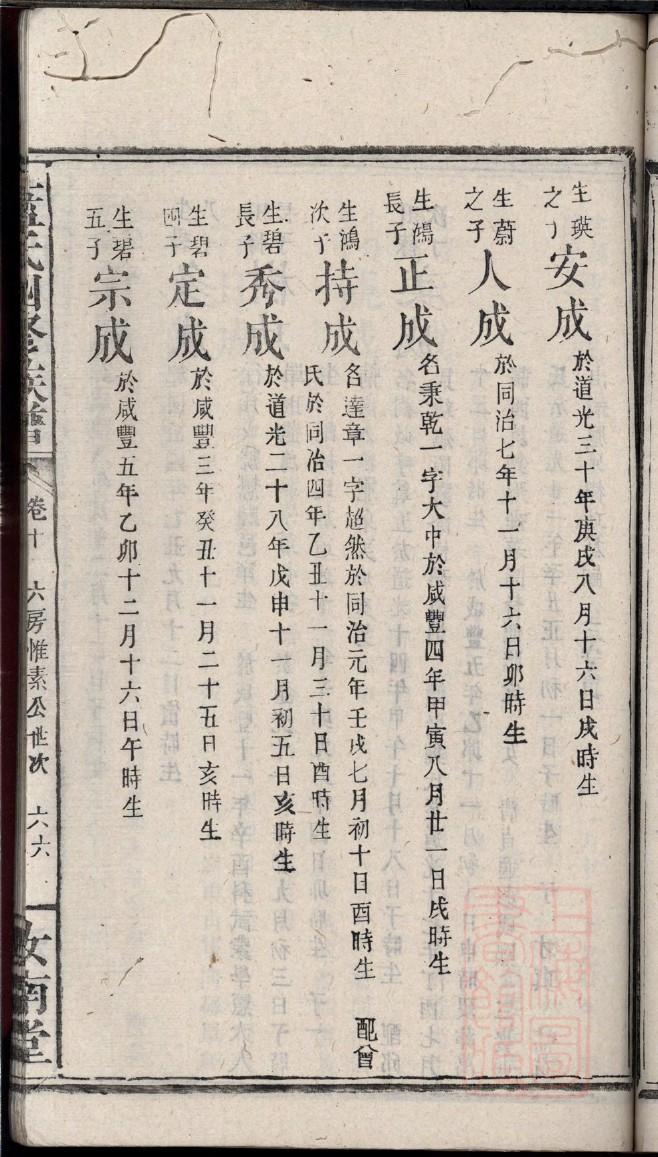 生瑛之子 安成 於道光三十年庚戌八月十六日戌時生
生蔚之子 人成 於同治七年十一月十六日卯時生
生鴻長子 正成 名秉乾一字大中於咸豐四年甲寅八月廿一日戌時生
生鴻次子 持成 名達章一字超然於同治元年壬戌七月初十日酉時生 配曾
氏於同治四年乙丑十一月三十日酉時生
生碧長子 秀成 於道光二十八年戊申十一月初五日亥時生
生碧四子 定成 於咸豐三年癸丑十一月二十五日亥時生
生碧五子 宗成 於咸豐五年乙卯十二月十六日午時生
氏四修族譜 卷十 六房惟素公世次 六六 汝南堂